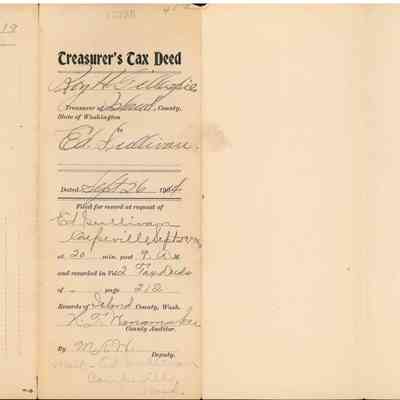 Treasurer's Tax Deed
Roy H. Gillespie
Treasurer of Island, County,
State of Washington
to
Ed. Sullivan.
Dated Sept 26 1904
Filed for record at request of
Ed Sullivan
Coupeville Sept
at 20 min. past 9 A M
and recorded in Vol 2 Tax Deeds
of page 212
Records of Island County, Wash.
County Auditor.
By Deputy.
Mail - Ed Sullivan
Coupeville
Wash.